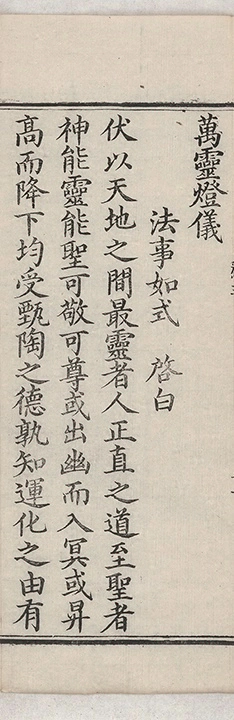 萬靈燈儀
法事如式　啓白
伏以天地之間最靈者人正直之道至聖者
神能靈能聖可敬可尊或出幽而入冥或昇
高而降下均受甄陶之德孰知運化之由有